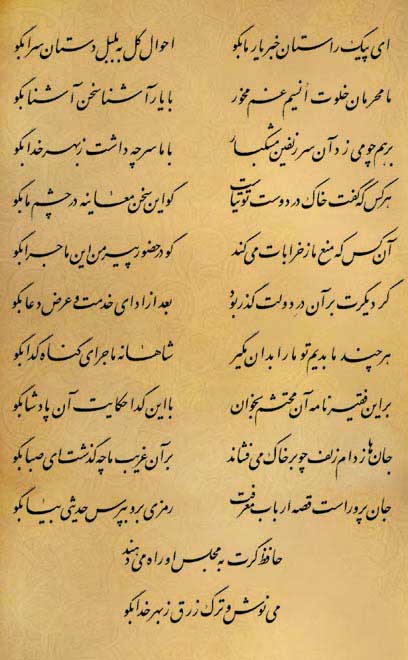 ای پیک راستان خبر یار ما بگو احوال گل به بلبل دستان سرا بگو
ما محرمان خلوت انسیم غم مخور با یار آشنا سخن آشنا بگو
برهم چو می زد آن سر زلفین مشکبار با ما سر چه داشت ز بهر خدا بگو
هر کس که گفت خاک در دوست توتیاست گو این سخن معاینه در چشم ما بگو
آن کس که منع ما ز خرابات می کند گو در حضور پیر من این ماجرا بگو
گر دیگرت بر آن در دولت گذر بود بعد از ادای خدمت و عرض دعا بگو
هر چند ما بدیم تو ما را بدان مگیر شاهانه ماجرای گناه گدا بگو
بر این فقیر نامه آن محتشم بخوان با این گدا حکایت آن پادشا بگو
جان ها ز دام زلف چو بر خاک می فشاند بر آن غریب ما چه گذشت ای صبا بگو
جان پرور است قصه ارباب معرفت رمزی برو بپرس حدیثی بیا بگو
حافظ گرت به مجلس او راه می دهند
می نوش و ترک زرق ز بهر خدا بگو